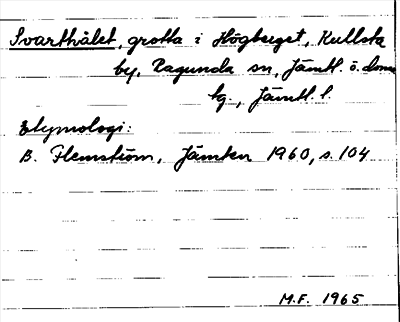 Svarthålet, grotta i Högberget, Kullsta
by, Ragunda sn, Jämtl. ö. doms
tg., Jämtl. l.
Etymologi:
B. Flemström, Jämten 1960, s. 104
M.F. 1965